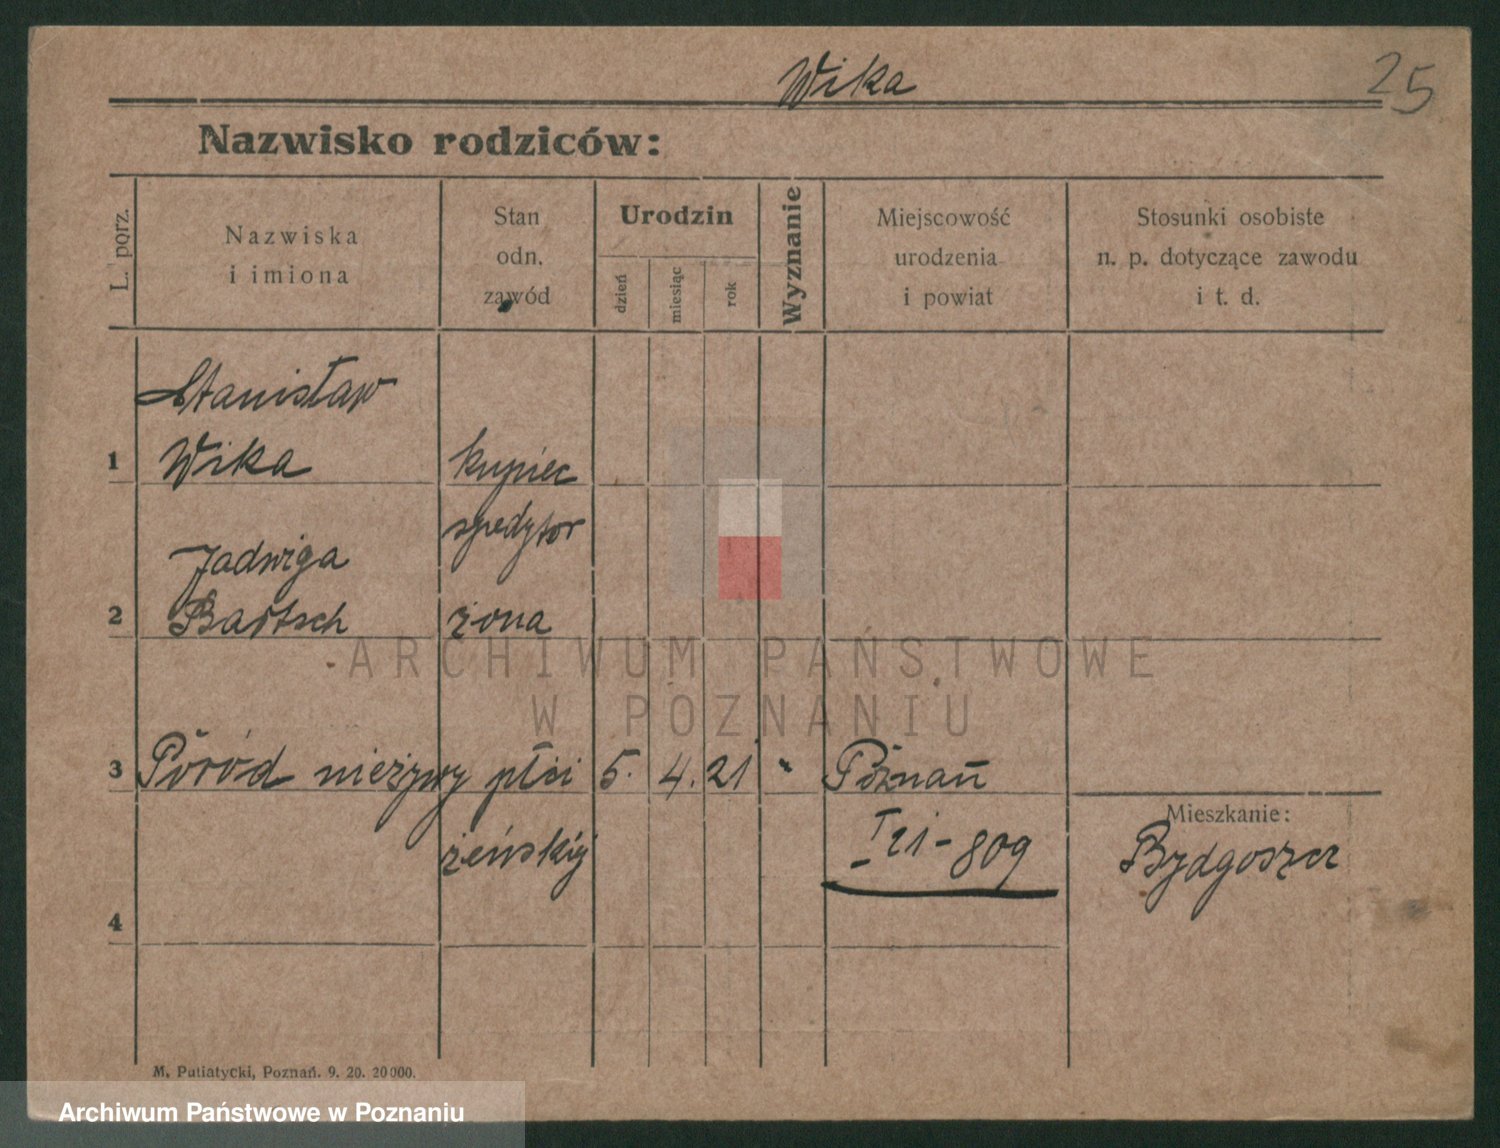 Wika
25
Nazwisko rodziców:
L. porz.
Nazwiska
i imiona
Stan
odn.
zawód
Urodzin
dzień
miesiąc
rok
Wyznanie
Miejscowość
urodzenia
i powiat
Stosunki osobiste
n. p. dotyczące zawodu
i t. d.
Stanisław
1 Wika kupiec
spedytor
Jadwiga
2 Bartsch żona
3 Poród nieżywy płci 5. 4. 21 " Poznań
żeńskiej
I 21-809
Mieszkanie:
Bydgoszcz
4
M. Putiatycki, Poznań. 9. 20. 20000.
ARCHIWUM PAŃSTWOWE
W POZNANIU
Archiwum Państwowe w Poznaniu